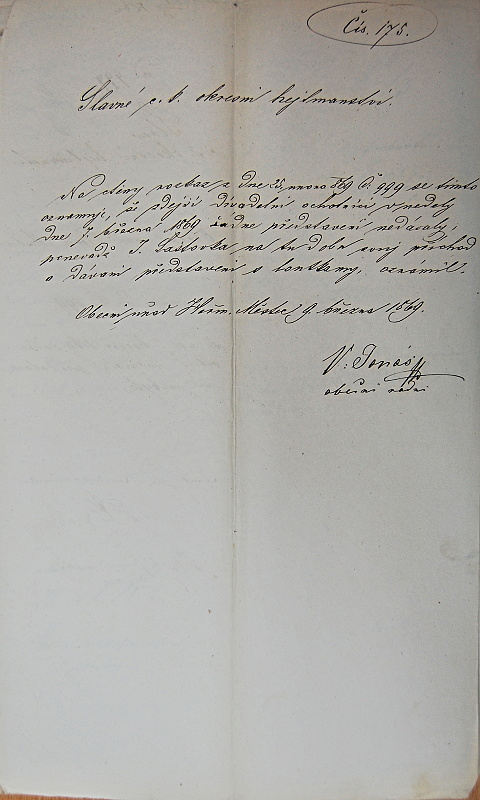 Čís. 175.
Slavné c. k. okresní hejtmanství.
Na ctěný rozkaz z dne 25. února 869 č. 999 se tímto
oznamuje, že zdejší divadelní ochotníci v neděly
dne 7. března 1869 žádne představení nedávaly,
poněvadž J. Laštovka na tu dobu svůj příchod
a dávaní představení s loutkamy, oznámil.
Obecní úřad Heřm. Městec 9. března 1869.
V. Jonáš
obecní radní